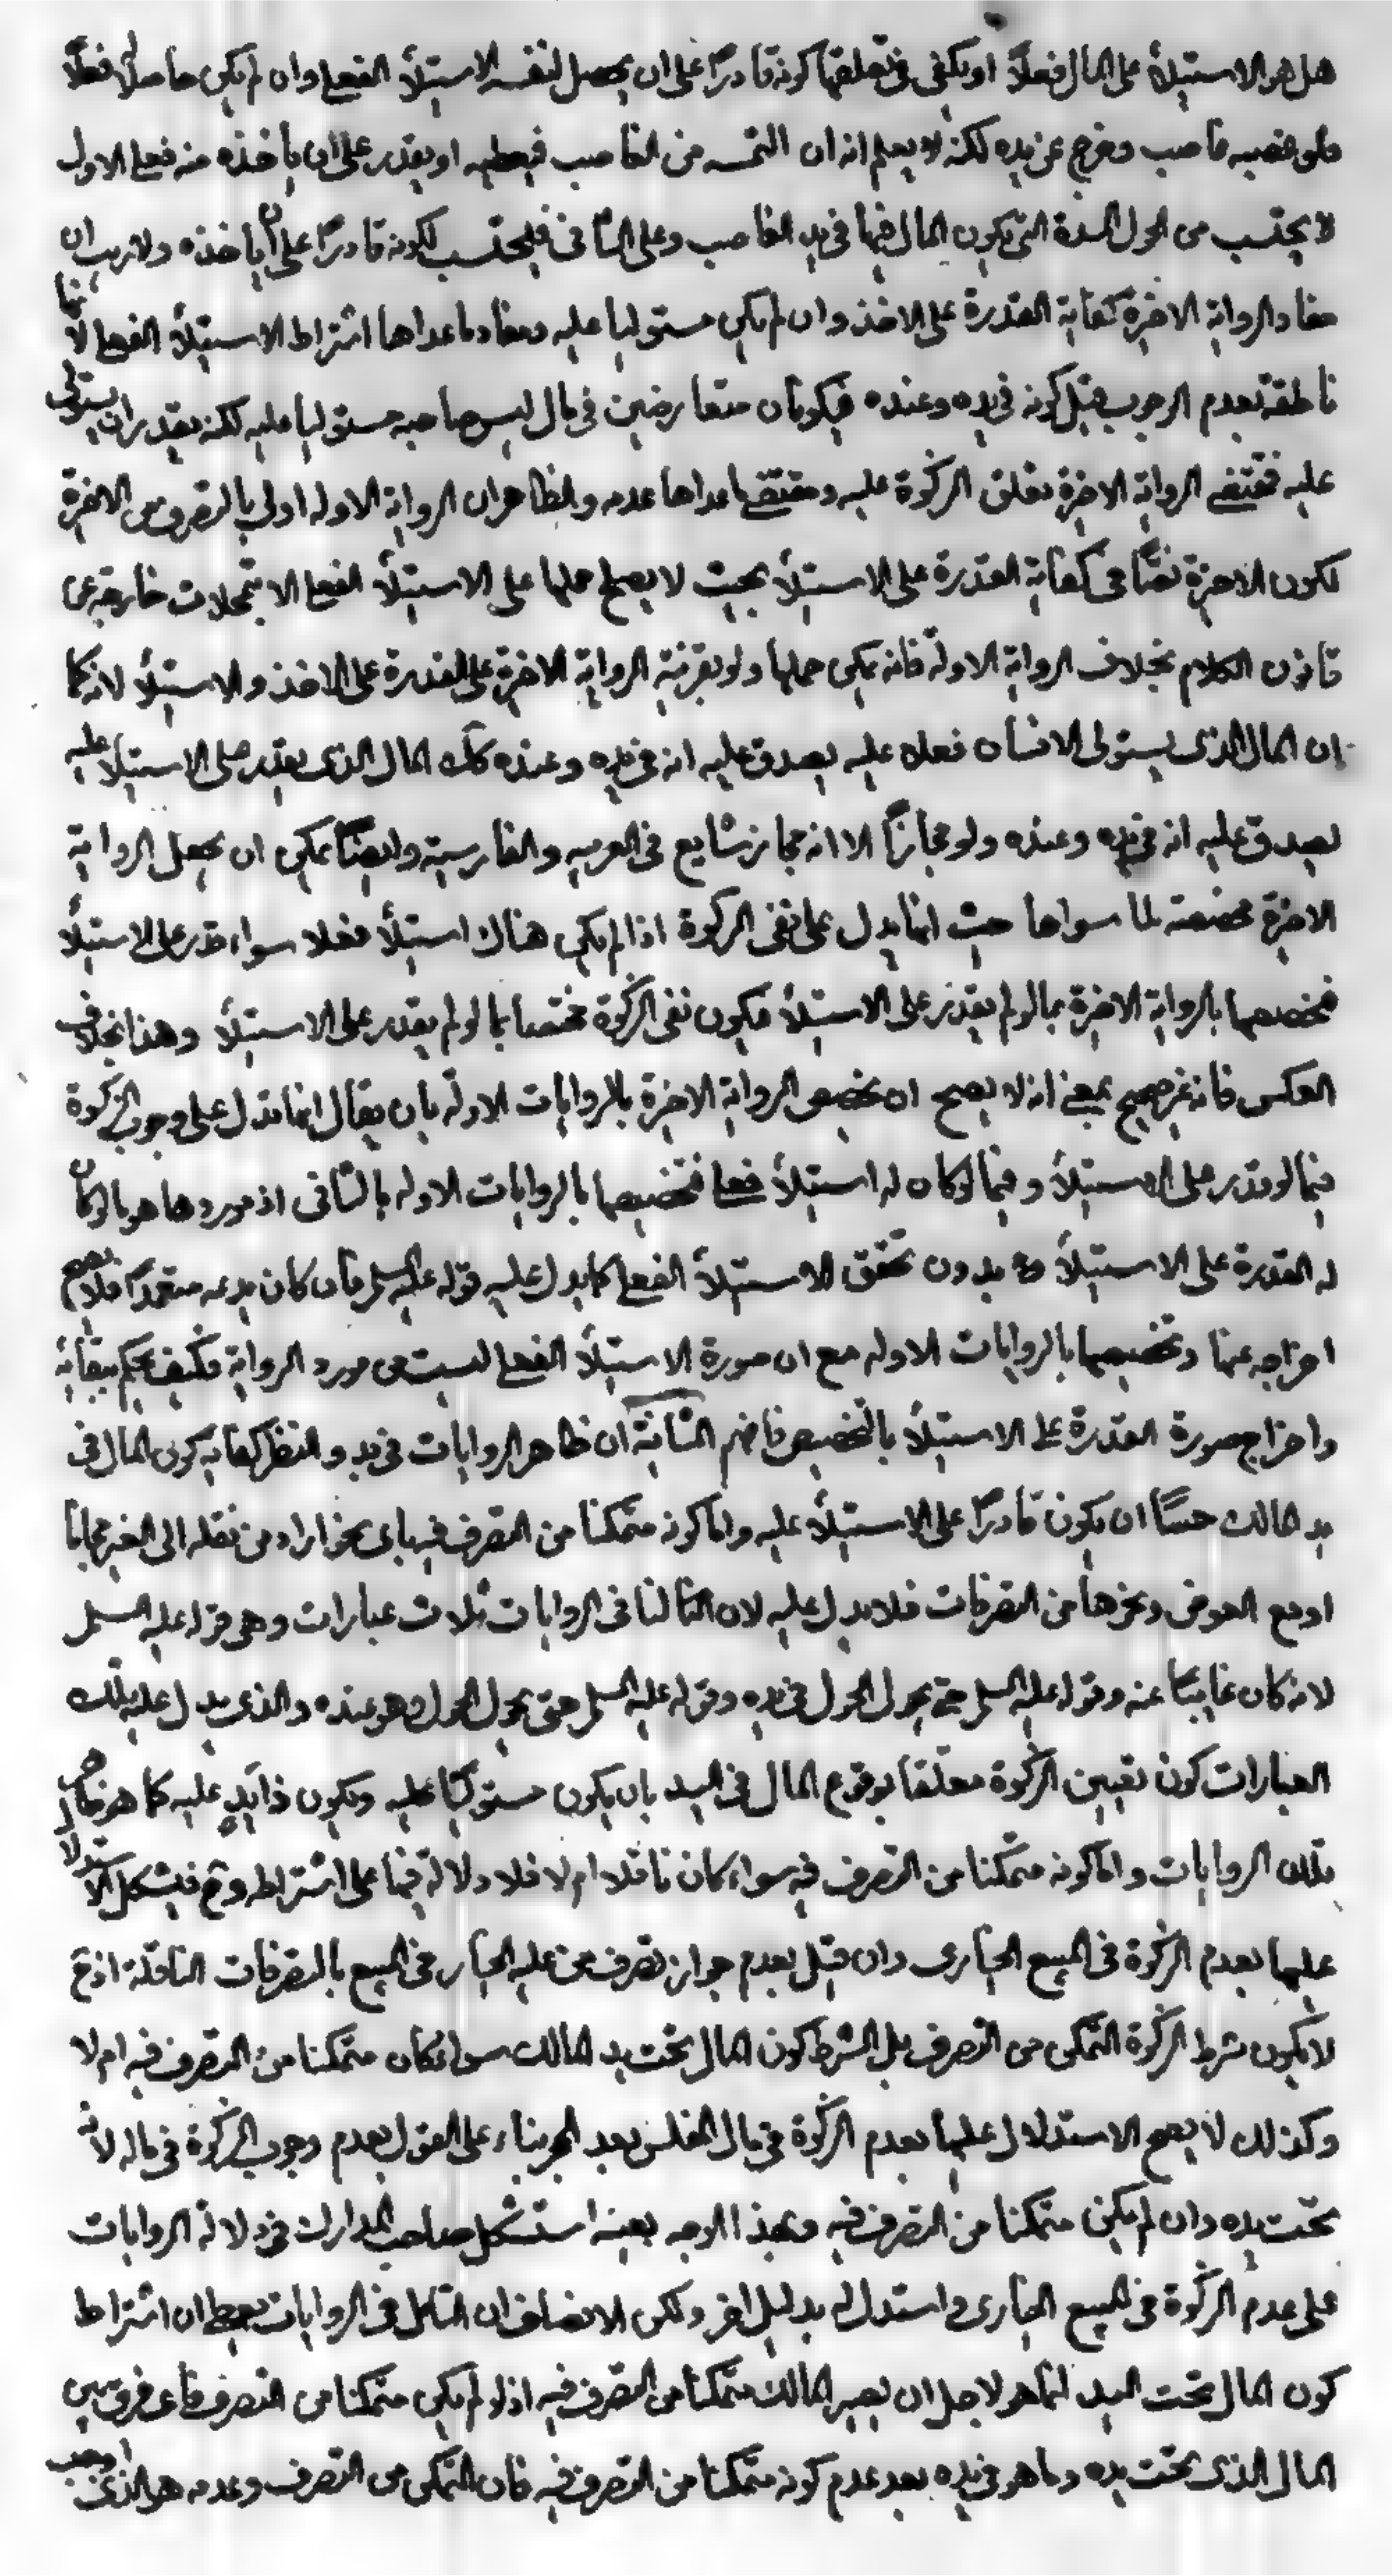 هل هو الاستيلاء على المال فعلاً او يكفى فى تعلقها كونه قادرًا على ان يحصل لنفسه الاستيلاء الفعلى وان لم يكن حاصلاً له فعلاً
فلو غصبه غاصب وخرج عن يده لكنه يعلم انه ان التمسه من الغاصب فيعطيه او يقدر على ان ياخذه منه فعلى الاول
لا يحتسب من الحول المدة التى يكون المال فيها فى يد الغاصب وعلى الثانى فيحتسب لكونه قادرًا على ان ياخذه ولا ريب ان
مفاد الرواية الاخيرة كفاية القدرة على الاخذ وان لم يكن مستوليا عليه ومفاد ما عداها اشتراط الاستيلاء الفعلى لانها
ناطقة بعدم الوجوب قبل كونه فى يده وعنده فيكونان متعارضين فى مال ليس صاحبه مستوليا عليه لكنه يقدر ان يستولى
عليه فمقتضى الرواية الاخيرة تعلق الزكوة عليه ومقتضى ما عداها عدمه والظاهر ان الرواية الاوله اولى بالتصرف من الاخيرة
لكون الاخيرة نصًّا فى كفاية القدرة على الاستيلاء بحيث لا يصلح حملها على الاستيلاء الفعلى الا بتمحلات خارجه عن
قانون الكلام بخلاف الرواية الاولة فانه يمكن حملها ولو بقرينة الرواية الاخيرة على القدرة على الاخذ والاستيلاء لانه كما
ان المال الذى يستولى الانسان فعلا عليه يصدق عليه انه فى يده وعنده كك المال الذى يقدر على الاستيلاء عليه
يصدق عليه انه فى يده وعنده ولو مجازًا الا انه مجاز شايع فى العربيه والفارسية وايضًا يمكن ان يجعل الرواية
الاخيرة مخصصة لما سواها حيث انها يدل على نفى الزكوة اذا لم يكن هناك استيلاء فعلا سواء قدر على الاستيلاء
فخصصها بالرواية الاخيرة بما لو لم يقدر على الاستيلاء فيكون نفى الزكوة مختصا بما لو لم يقدر على الاستيلاء وهذا بخلاف
العكس فانه غير صحيح بمعنى انه لا يصح ان يخصص الرواية الاخيرة بالروايات الاولة بان يقال انها تدل على وجوب الزكوة
فيما لو قدر على الاستيلاء وفيما لو كان له استيلاء فعلى فتخصيصها بالروايات الاوله بالثانى اذ موردها هو ما لو كان
له القدرة على الاستيلاء بدون تحقق الاستيلاء الفعلى كما يدل عليه قوله عليه السلم فان كان يدعه متعمدًا فلا يصح
اخراجه عنها وتخصيصها بالروايات الاوله مع ان صورة الاستيلاء الفعلى ليست من مورد الرواية فكيف يحكم ببقائه
واخراج صورة القدرة على الاستيلاء بالتخصيص فافهم الثانية ان ظاهر الروايات فى بدو النظر كفاية كون المال فى
يد المالك حسًّا ان يكون قادرًا على الاستيلاء عليه واما كونه متمكنا من التصرف فيه باى نحو اراد من نقله الى الغير مجانا
او مع العوض ونحوها من التصرفات فلا يدل عليه لان الثابت لنا فى الروايات ثلاث عبارات وهى قوله عليه السلم
لانه كان غايبًا عنه وقوله عليه السلم حتى يحول الحول فى يده وقوله عليه السلم حتى يحول الحول وهو عنده والذى يدل عليه تلك
العبارات كون تعيين الزكوة معلقا بوقوع المال فى اليد بان يكون مستوليًا عليه ويكون ذا يدٍ عليه كما هو مفاد
تلك الروايات واما كونه متمكنا من التصرف فيه سواء كان ناقلا ام لا فلا دلالة فيها على اشتراطه وح فيشكل الاستدلال
عليها بعدم الزكوة فى المبيع الخيارى وان قيل بعدم جواز تصرف من عليه الخيار فى المبيع بالتصرفات الناقلة اذ ح
لا يكون شرط الزكوة التمكن من التصرف بل الشرط كون المال تحت يد المالك سواء كان متمكنا من التصرف فيه ام لا
وكذلك لا يصح الاستدلال عليها بعدم الزكوة فى مال المفلس بعد الحجر بناء على القول بعدم وجوب الزكوة فى ماله لانه
تحت يده وان لم يكن متمكنا من التصرف فيه وبهذا الوجه بعينه استشكل صاحب المدارك فى دلالة الروايات
على عدم الزكوة فى المبيع الخيارى واستدل له بدليل اخر ولكن الانصاف ان التامل فى الروايات يعطى ان اشتراط
كون المال تحت اليد انما هو لاجل ان يصير المالك متمكنا من التصرف فيه اذ لو لم يكن متمكنا من التصرف فاى فرق بين
المال الذى تحت يده وما هو فى يده بعد عدم كونه متمكنا من التصرف فيه فان التمكن من التصرف وعدمه هو الذى اوجب